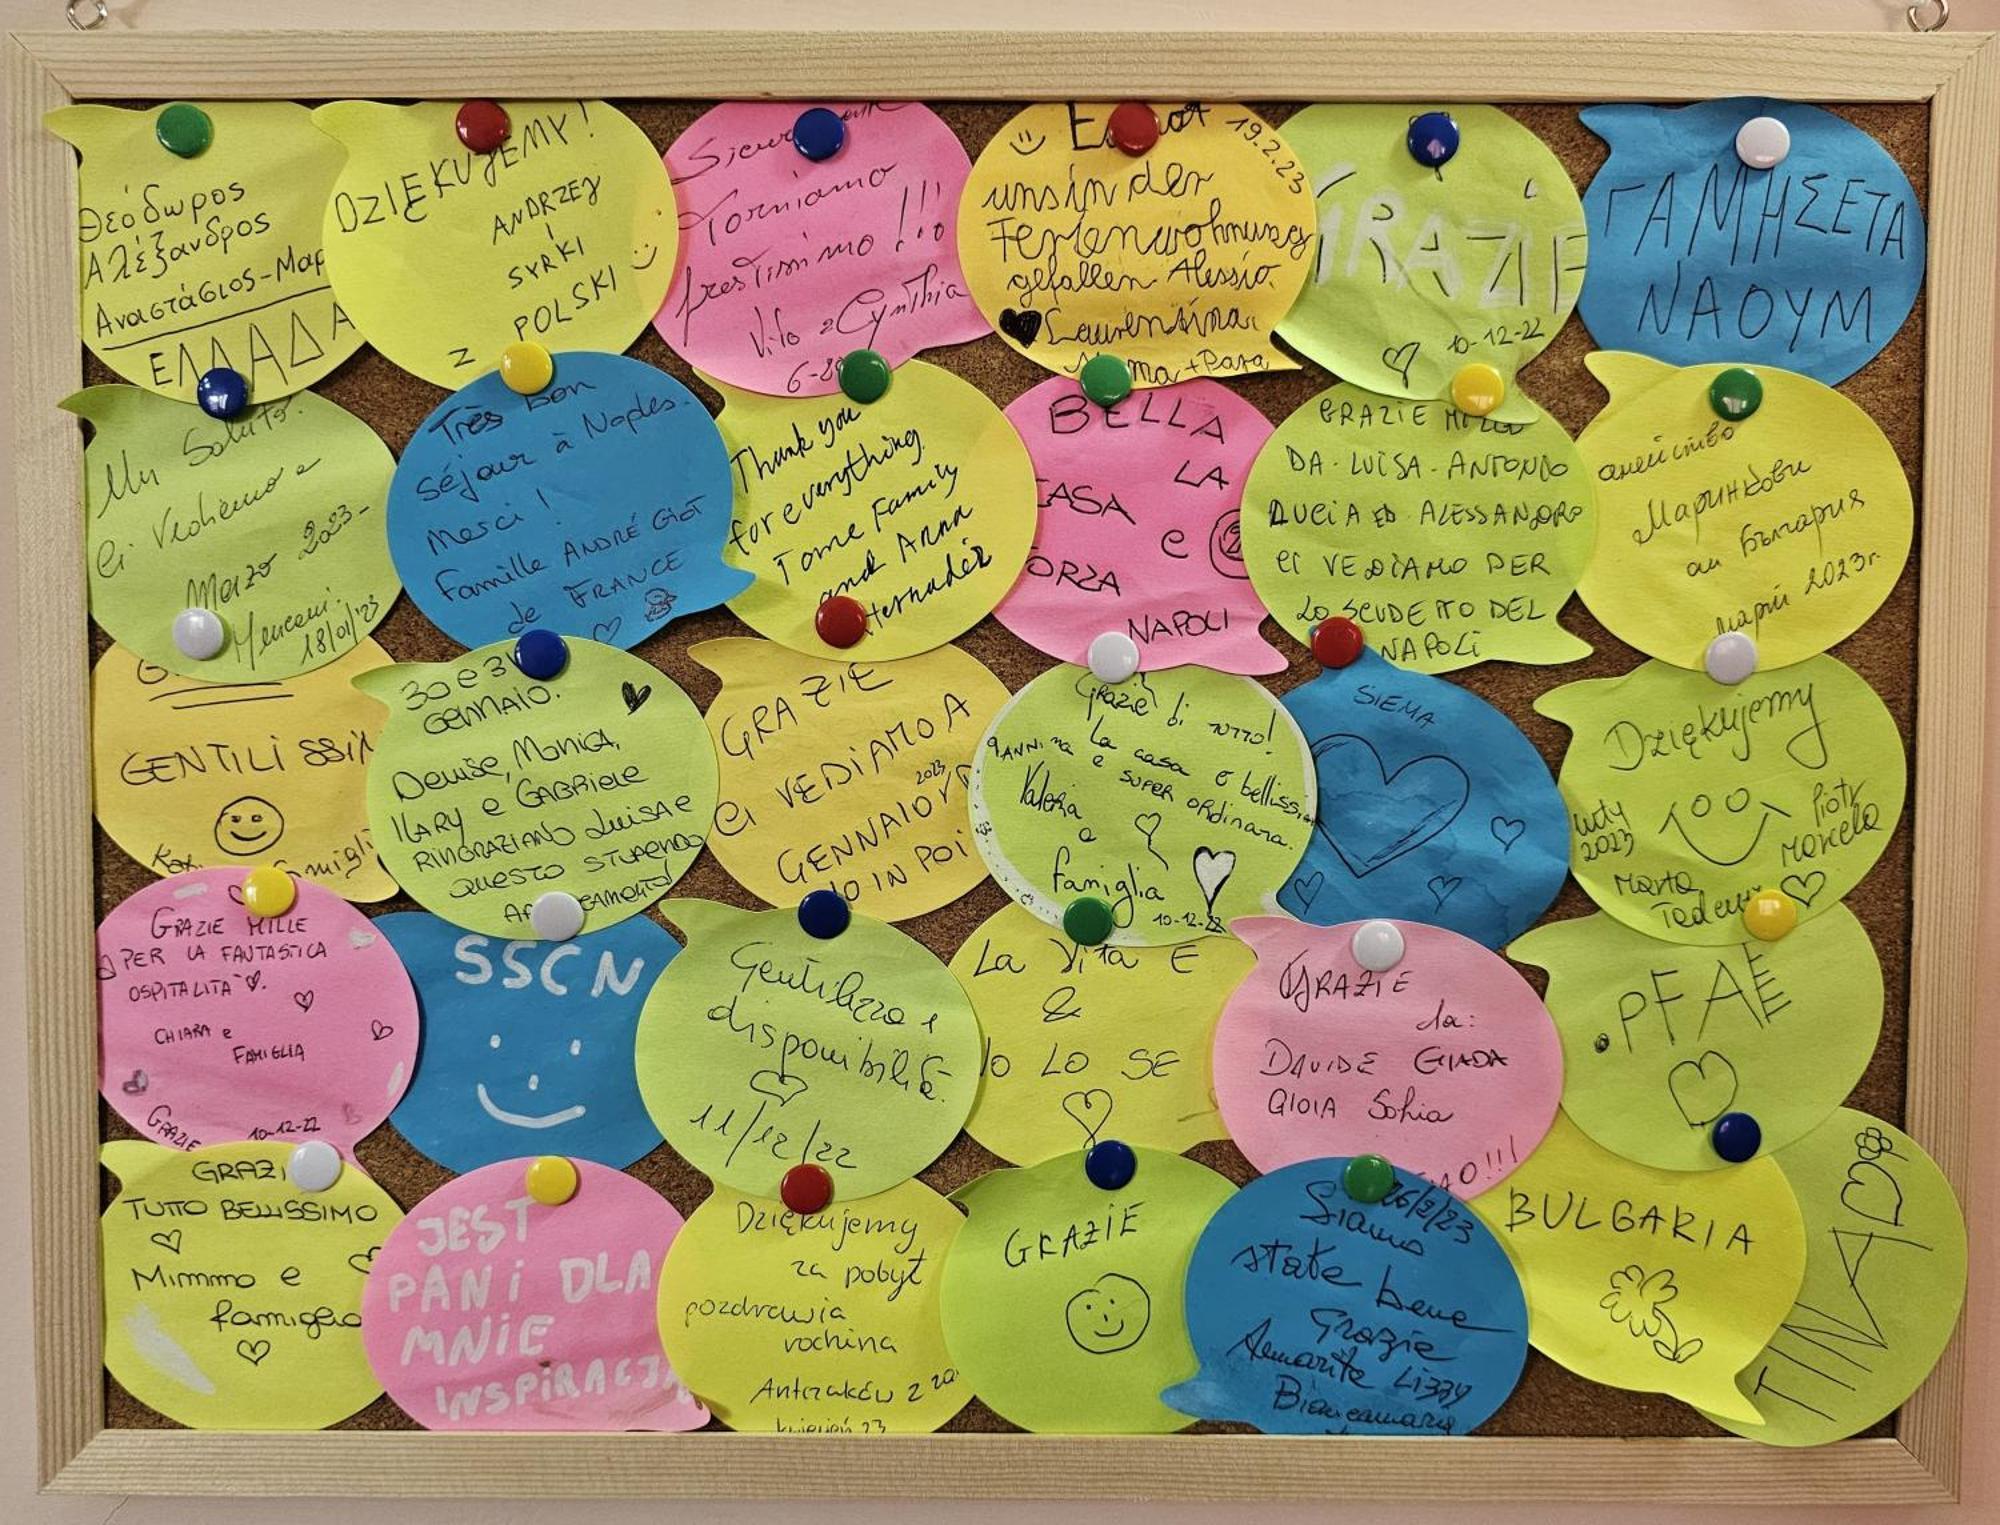 Θεόδωρος
Αλέξανδρος
Αναστάσιος-Μαρ
ΕΛΛΑΔΑ
DZIĘKUJEMY!
ANDRZEJ
I
SYRKI
Z POLSKI
Torniamo
prestissimo!!!
Vito e Cynthia
19.2.23
uns in der
Ferienwohnung
gefallen Alessio.
Laurentina.
+ Papa
GRAZIE
10-12-22
ΓΑΜΗΣΕΤΑ
ΝΑΟΥΜ
Un Saluto.
Ci Vediamo a
Marzo 2023-
18/01/'23
Très bon
séjour à Naples.
Merci!
Famille ANDRÉ GIOT
de FRANCE
Thank you
for everything.
Tome Family
and Anna
Hernadez
BELLA
LA
CASA e
FORZA
NAPOLI
GRAZIE MILLE
DA-LUISA-ANTONIO
LUCIA ED ALESSANDRO
CI VEDIAMO PER
LO SCUDETTO DEL
NAPOLI
семейство
Маринкови
от България
март 2023г.
GENTILISSIM
30 e 31
GENNAIO.
Denise, Monica,
ILARY e GABRIELE
RINGRAZIANO LUISA e
QUESTO STUPENDO
GRAZIE
Ci VEDIAMO A
2023
GENNAIO
IO IN POI
Grazie di tutto!
La casa è bellissima
e super ordinara.
Valeria
e
famiglia
10-12-22
SIEMA
Dziękujemy
luty
2023
Piotr
Marcela
Marta
GRAZIE MILLE
PER LA FANTASTICA
OSPITALITÀ.
CHIARA e
FAMIGLIA
GRAZIE
10-12-22
SSCN
Gentilezza e
disponibilità.
11/12/22
La Vita E
&
IO LO SE
GRAZIE
da:
DAVIDE GIADA
GIOIA Sofia
CIAO!!!
.PFAE
GRAZI
TUTTO BELLISSIMO
Mimmo e
famiglia
JEST
PANI DLA
MNIE
INSPIRACJĄ
Dziękujemy
za pobyt
pozdrawia
rodzina
Antczaków z
kwiecień 23
GRAZIE
26/3/23
Siamo
state bene
Grazie
Annarita Lizzy
Biancamaria
BULGARIA
TINA